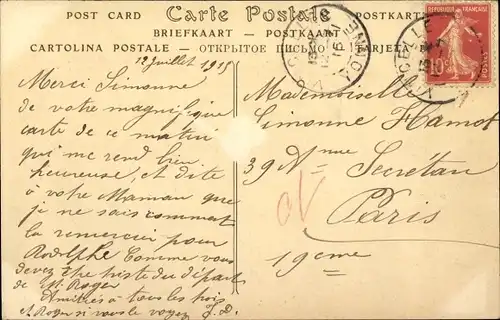 POST CARD Carte Postale POSTKARTE
BRIEFKAART — POSTKAART
CARTOLINA POSTALE — ОТКРЫТОЕ ПИСЬМО — TARJETA
12 juillet 1915
Merci Simonne
de votre magnifique
carte de ce matin
qui me rend bien
heureuse, et dite
à votre Maman que
je ne sais comment
la remercier pour
Rodolphe Comme vous
devez être triste du départ
de M. Roger
Amitiés à tous les trois
A Roger si vous le voyez J. D.
Mademoiselle
Simonne Hamot
39 Ave Secrétan
Paris
19eme
10c